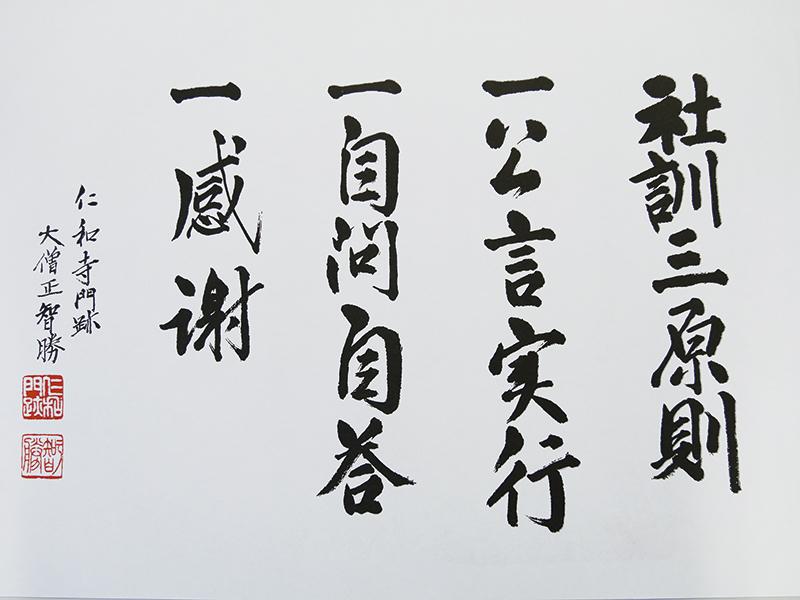 社訓三原則
一公言実行
一自問自答
一感謝
仁和寺門跡
大僧正智勝
仁和門跡
智勝